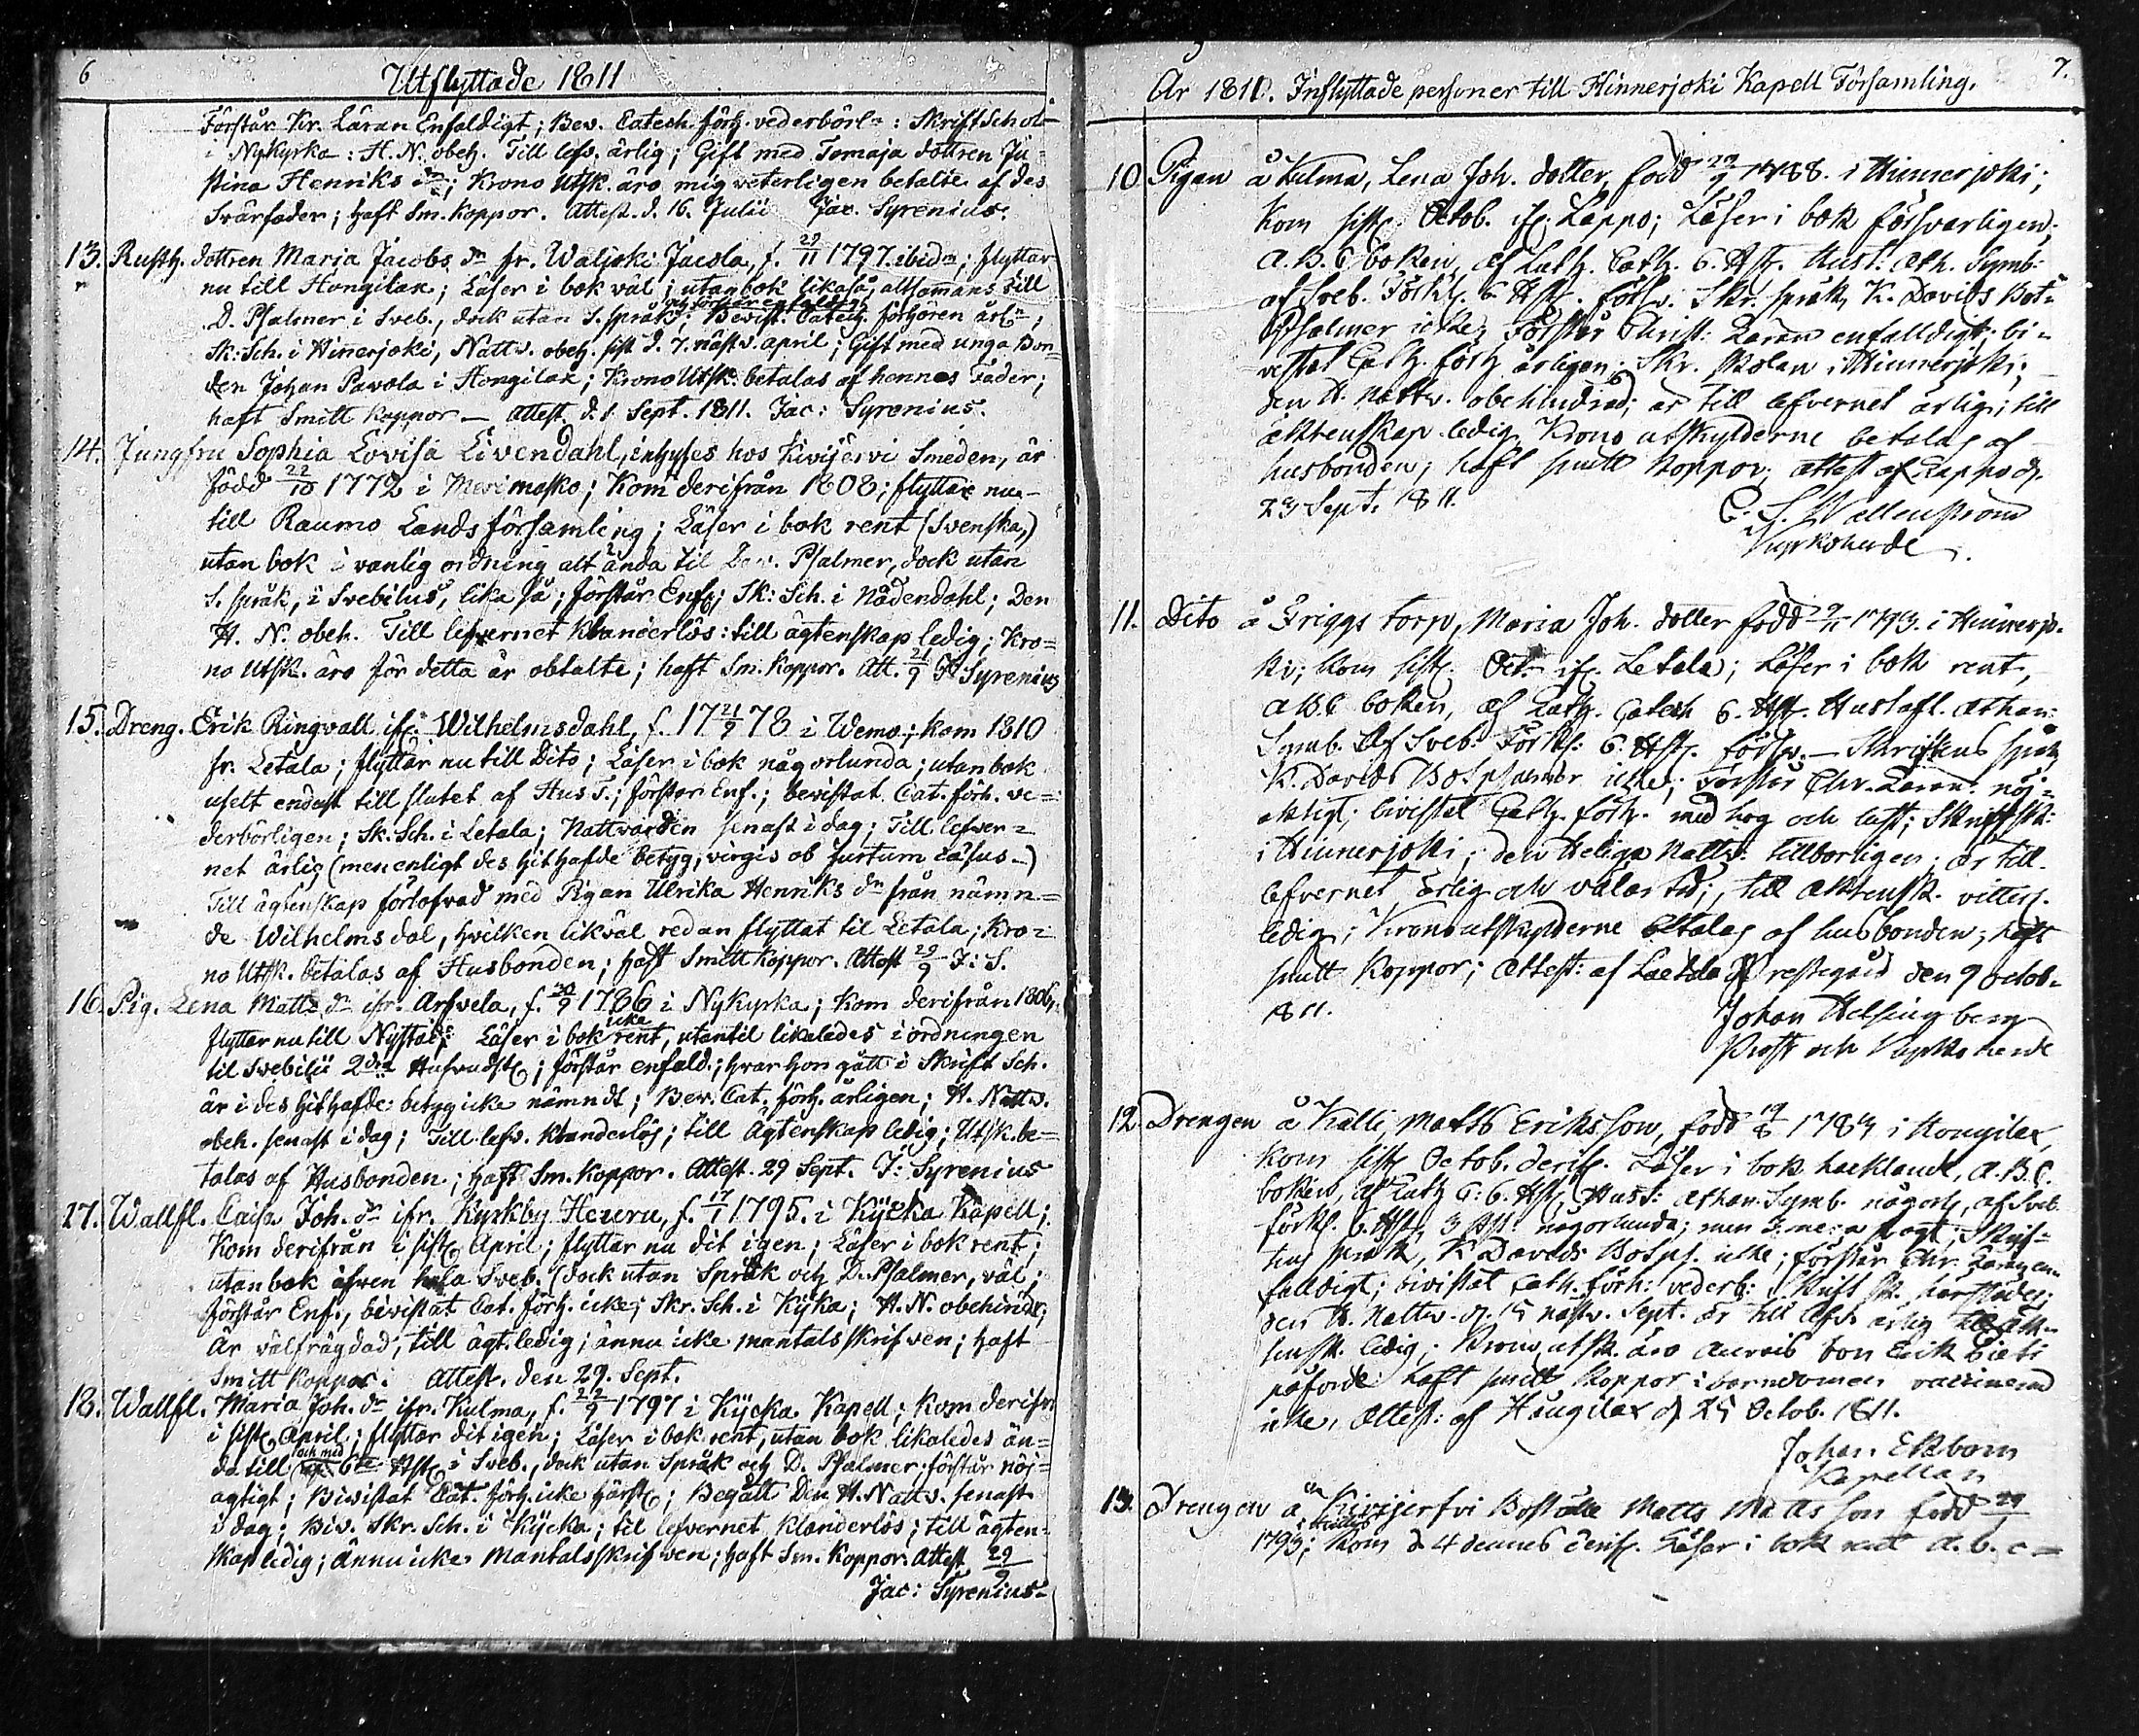 6
Utflyttade 1811
Förstår Kr. Läran Enfaldigt; Bev. Catech. förh. vederbörl:n: Skrift Schol
i Nykyrka: H. N. obeh. Till lefv. ärlig; Gift med Tomaja dottren Ju-
stina Henriks d:r; Krono Utsk. äro mig veterligen betalte af des
Svärfader; haft Sm. koppor. Attest. d. 16. Julii Jac. Syrenius.
13. Rusth. dottren Maria Jacobs d:r fr. Waljoki Jacola, f. 29/11 1797. ibid:m; flyttar
nu till Hongilax; Läser i bok väl; utan bok likaså, altsammans till
D. Psalmer i Sveb., dock utan S. språk; Bevist. Catech. förhören ärl:n;
Sk: Sch. i Hinnerjoki, Nattv. obeh. sist d. 7. näst v. april; Gift med unga Bon-
den Johan Pavola i Hongilax; Krono Utsk: betalas af hennes Fader;
haft Smitt koppor — attest. d. 1. Sept. 1811. Jac: Syrenius.
14. Jungfru Sophia Lovisa Livendahl, inhyses hos Kivijervi Smeden, är
född 22/10 1772 i Merimasko; Kom derifrån 1808; flyttar nu-
till Raumo Lands församling; Läser i bok rent (Svenska,)
utan bok i vanlig ordning alt ända til Dav. Psalmer, dock utan
S. språk, i Svebilius, lika så; förstår Enf; Sk: Sch. i Nådendahl; Den
H. N. obeh. Till lefvernet klanderlös: till ägtenskap ledig; Kro-
no Utsk. äro för detta år obtalte; haft Sm. koppor. Att. 21/9 Syrenius
15. Dreng. Erik Ringvall ifr. Wilhelmsdahl, f. 17 21/9 78 i Wemo; kom 1810
fr. Letala; flyttar nu till Dito; Läser i bok någorlunda; utan bok
uselt endast till slutet af Hus T.; förstår Enf.; bevistat Cat. förh. ve-
derbörligen; Sk. Sch. i Letala; Nattvarden senast i dag; Till lefver-
net ärlig (men enligt des hit hafde betyg, virgis ob furtum cæsus)
Till ägtenskap förlofvad med Pigan Ulrika Henriks d:r från nämn-
de Wilhelmsdal, hvilken likväl redan flyttat til Letala; Kro-
no Utsk. betalas af Husbonden; haft Smitt koppor. Attest 29/9 J: S.
16. Pig. Lena Matts d:r ifr. Arfvela, f. 30/9 1786 i Nykyrka; Kom derifrån 1806,
flyttar nu till Nystad; Läser i bok icke rent, utantil likaledes i ordningen
til Svebilii 2dra Hufvudst; förstår enfald.; hvar hon gått i Skrift Sch.
är i des hit hafde betyg icke nämndt; Bev. Cat. förh. ärligen; H. Nattv.
obeh. senast i dag; Till lefv. klanderlös; till Ägtenskap ledig; Utsk. be-
talas af Husbonden; haft Sm. koppor. Attest. 29 Sept. J: Syrenius
17. Wallfl. Caisa Joh. d:r ifr. Kyrkby Heuru, f. 17/1 1795. i Kycka Kapell;
Kom derifrån i sist April; flyttar nu dit igen; Läser i bok rent;
utan bok äfven hela Sveb. (dock utan Språk och D. Psalmer, väl;
förstår Enf., bevistat Cat. förh. icke; Skr. Sch. i Kyka; H. N. obehindr.;
Är välfrägdad; till ägt. ledig; ännu icke mantalsskrifven; haft
Smitt koppor; Attest. den 29. Sept.
18. Wallfl. Maria Joh. d:r ifr. Kulma, f. 22/9 1797 i Kycka Kapell; kom derifr.
i sist April; flyttar dit igen; Läser i bok rent, utan bok likaledes än-
da till och med 6te Hst i Sveb., dock utan Språk och D. Psalmer; förstår nöj-
agtigt; Bevistat Cat. förh. icke härst; Begått Den H. Nattv. senast
i dag; Bev. Skr. Sch. i Kycka; til lefvernet klanderlös; till ägten-
skap ledig; ännu icke Mantalsskrifven; haft Sm. koppor. Attest 29/9
Jac: Syrenius
År 1811. Inflyttade personer till Hinnerjoki Kapell Församling.
7.
10 Pigan å Kulma, Lena Joh. dotter, född 29/9 1788. i Hinnerjoki;
Kom sist. Octob. if. Lappo; Läser i bok försvarligen,
A. B. C boken, af Luth. Cath. 6. Hst. Hust: Ath. Symb:
af Sveb. Förkl. 6 Hst. förkl. Skr. språk, K. Davids Bot-
Psalmer icke; Förstår Christ: Läran enfalldigt; bi-
vistat Cath. förh årligen; Skr. skolan i Hinnerjoki;
den H. Nattv. obehindrad; är till lefvernet ärlig; till
äktenskap ledig Krono utskylderne betalas af
husbonden; haft smitt koppor; attest af Lappo d.
23 Sept. 1811.
Kyrkoherde
11. Dito å Friggs torp, Maria Joh. dotter född 9/11 1793. i Hinnerjo-
ki; kom sist. Oct. if. Letala; Läser i bok rent,
ABC boken, af Luth. Catech 6. Hst. Hustafl. Athan:
Symb. Af Sveb: Förkl: 6. Hst. förkl. — Skriftens språk
K. Davids Botpsalmer icke; Förstår Chr. Läran nöj-
aktigt; bevistat Cath. förh. med hog och lust; Skriftsk:
i Hinnerjoki; den Heliga Nattv: tillbörligen; är till
lefvernet, ärlig och välartad; till äktensk. vitterl.
ledig; Kronoutskylderne betalas af husbonden; haft
smitt koppor; Attest: af Laetala Prestegård den 9 octob.
1811.
Johan Helsingberg
Prost och Kyrkoherde
12 Drengen å Kalli, Matts Eriksson, född 19/8 1784 i Hongilax,
kom sist Octob. derif. Läser i bok hacklande, A. B. C.
boken, af Luth C: 6. Hst, Hust: Athan. Symb. någorl, af Sveb.
förkl. 6. Hst, någorlunda; men
K Davids Botps. icke; förstår Chr. Läran en-
falldigt; bivistat Cath. förh: vederb: Skrift Sk. härstädes;
den H. Nattv. d. 15 nästv. Sept. är till lefv. ärlig till äk-
tensk. ledig; Krono utsk. äro
påförde haft smitt koppor i barndomen vaccinerad
icke, Attest: af Hongilax d 25 Octob. 1811.
Johan Ekbom
Kapellan
13. Drengen å Kivijerfvi Boställe Matts Matts son född 29
1793; kom d 4 dennes derif. Läser i bok rent a. b. c